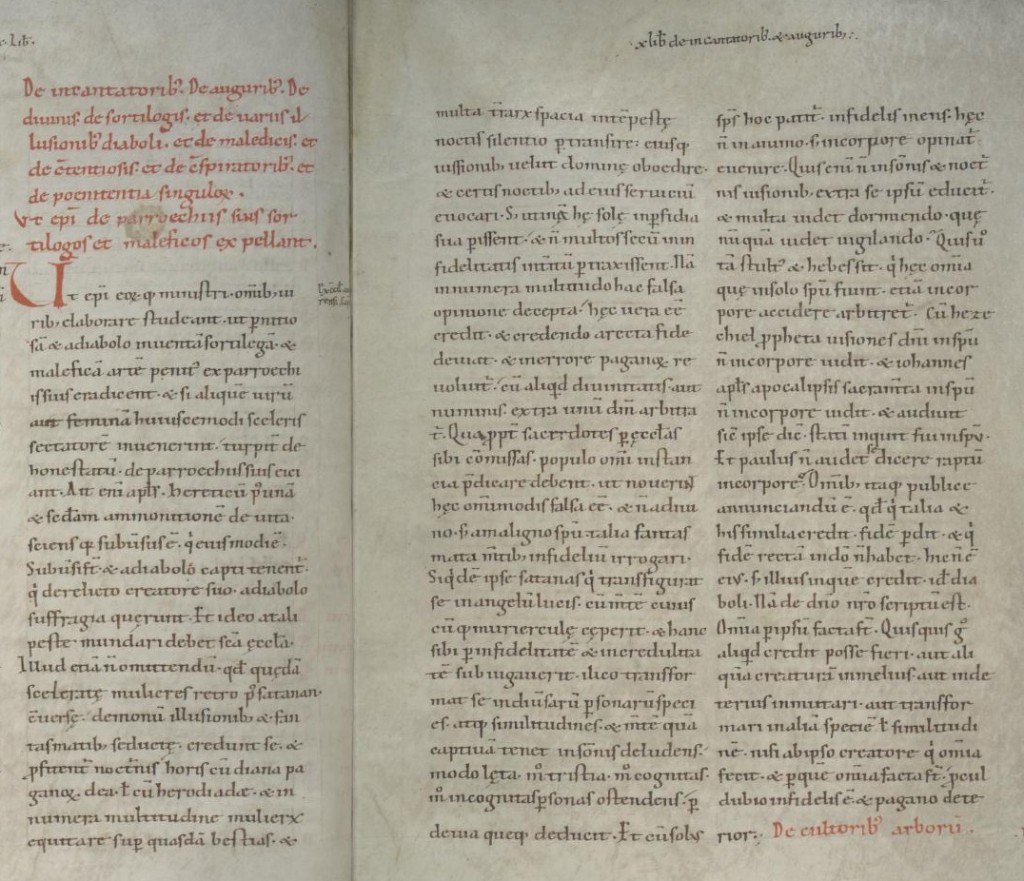 x lib̄ de incantatorib; & augurib;
De incantatorib;. De augurib;. De
diuinis. de sortilogis. et de uariis il
lusionib; diaboli. et de maledicis. et
de c̄tentiosis. et de c̄spiratorib;. et
de poenitentia singuloꝝ.
Vt ep̄i de parroechiis suis sor
tilogos et maleficos expellant.
Ut ep̄i eoꝝq; ministri omib; ui
rib; elaborare studeant. ut p̄nitio
sā & a diabolo inuentā sortilegā &
maleficā artē penit; ex parroechi
is suis eradicent. & si aliquē uirū
aut feminā huiuscemodi sceleris
sectatorē inuenerint. turpit̄ de
honestatū. de parroechiis suis eici
ant. Ait eni apl̄s. hereticū p; unā
& sed̄am ammonitionē deuita.
sciens qꝫ subūsus ē. q̇ eiusmodi ē.
Subūsi s̄t. & a diabolo capti tenent̄.
q̇ derelicto creatore suo. a diabolo
suffragia querunt. Et ideo a tali
peste mundari debet sc̄a ęccl̄a.
Illud etiā n̄ omittendū. qd̄ quędā
sceleratę mulieres retro p; satanan
c̄uersę. demonū illusionib; & fan
tasmatib; seductę. credunt se. &
ꝓfitent̄ noct̄nis horis cū diana pa
ganoꝝ dea. ł cū herodiade. & in
numera multitudine mulierꝝ
equitare sup̄ quasdā bestias. &
multa t̄rarꝝ spacia intēpestę
noctis silentio ꝑtransire. eiusq;
iussionib; uelut dominę oboedire.
& certis noctib; ad eius seruiciū
euocari. S; utinā hę solę in ꝑfidia
sua ꝑissent. & n̄ multos secū in in
fidelitatis intītū ꝑtraxissent. Nā
innumera multitudo hac falsa
opinione decepta. hęc uera eē
credit. & credendo a recta fide
deuiat. & in errore paganoꝝ re
uoluit̄. cū aliqd̄ diuinitatis. aut
numinis. extra unū dm̄ arbitra
t̄. Quaꝓpt̄ sacerdotes ꝑ ęccl̄as
sibi c̄missas. populo omi instan
cia p̄dicare debent. ut nouerint
hęc omimodis falsa eē. & n̄ a diui
no. s; a maligno spū. talia fantas
mata m̄tib; infideliū irrogari.
Siq̇dē ipse satanas q̇ transfigurat
se in angelū lucis. cū m̄tē cuius
cūq; muriercule cęperit. & hanc
sibi ꝑ infidelitatē & incredulita
tē subiugauerit. ilico transfor
mat se in diūsarū ꝑsonarū speci
es. atq; similitudines. & m̄tē quā
captiuā tenet in sōnis deludens.
modo lęta. m̊ tristia. m̊ cognitas.
m̊ incognitas ꝑsonas ostendens. ꝑ
deuia queq; deducit. Et cū solus
sps̄ hoc patit̄. infidelis mens. hęc
n̄ in animo. s; in corpore opinat̄
euenire. Quis eni n̄ in sōnis & noct̄
nis uisionib; extra se ipsū educit̄.
& multa uidet dormiendo. quę
nū quā uidet uigilando. Quis u̾
tā stult; & hebes sit. q̇ hęc omia
quę in solo spū fiunt. etiā in cor
pore accidere arbitret̄. Cū heze
chiel ꝓpheta uisiones dn̄i in spū
n̄ in corpore uidit. & iohannes
apl̄s apocalipsis sacram̄ta in spū
n̄ in corpore uidit. & audiuit
sic̄ ipse dic̄. statī inquit fui in spu.
Et paulus n̄ audet se dicere raptū
in corpore. Omib; itaq; publice
annunciandū ē. qd̄ q̇ talia &
his similia credit. fidē ꝑdit. & q̇
fidē rectā in dn̄o n̄ habet. hic n̄ ē
eius. s; illius in quē credit. id̄ dia
boli. Nā de dn̄o n̄ro scriptū est.
Omia p ipsū facta s̄t. Quisquis g̊
aliqd̄ credit posse fieri. aut ali
quā creaturā in melius. aut in de
terius inmutari. aut transfor
mari in aliā speciē ł similitudi
nē. nisi ab ipso creatore q̇ omia
fecit. & ꝑ quē omia facta s̄t. ꝓcul
dubio infidelis ē. & pagano dete
rior. De cultorib; arborū.